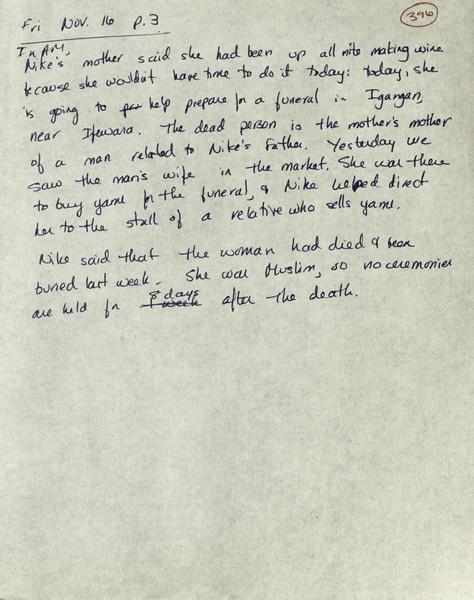 Fri Nov. 16 p.3
396
In AM,
Nike's mother said she had been up all nite making wine
because she wouldn't have time to do it today: today, she
is going to help prepare for a funeral in Igangan,
near Ifewara. The dead person is the mother's mother
of a man related to Nike's Father. Yesterday we
saw the man's wife in the market. She was there
to buy yams for the funeral, & Nike helped direct
her to the stall of a relative who sells yams.
Nike said that the woman had died & been
buried last week. She was Muslim, so no ceremonies
are held for 8 days after the death.